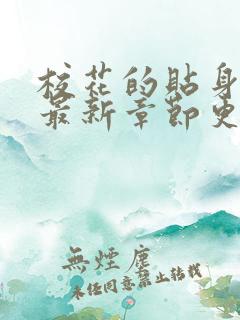 校花的貼身
最新章節更
無煙塵
未经同意禁止转载